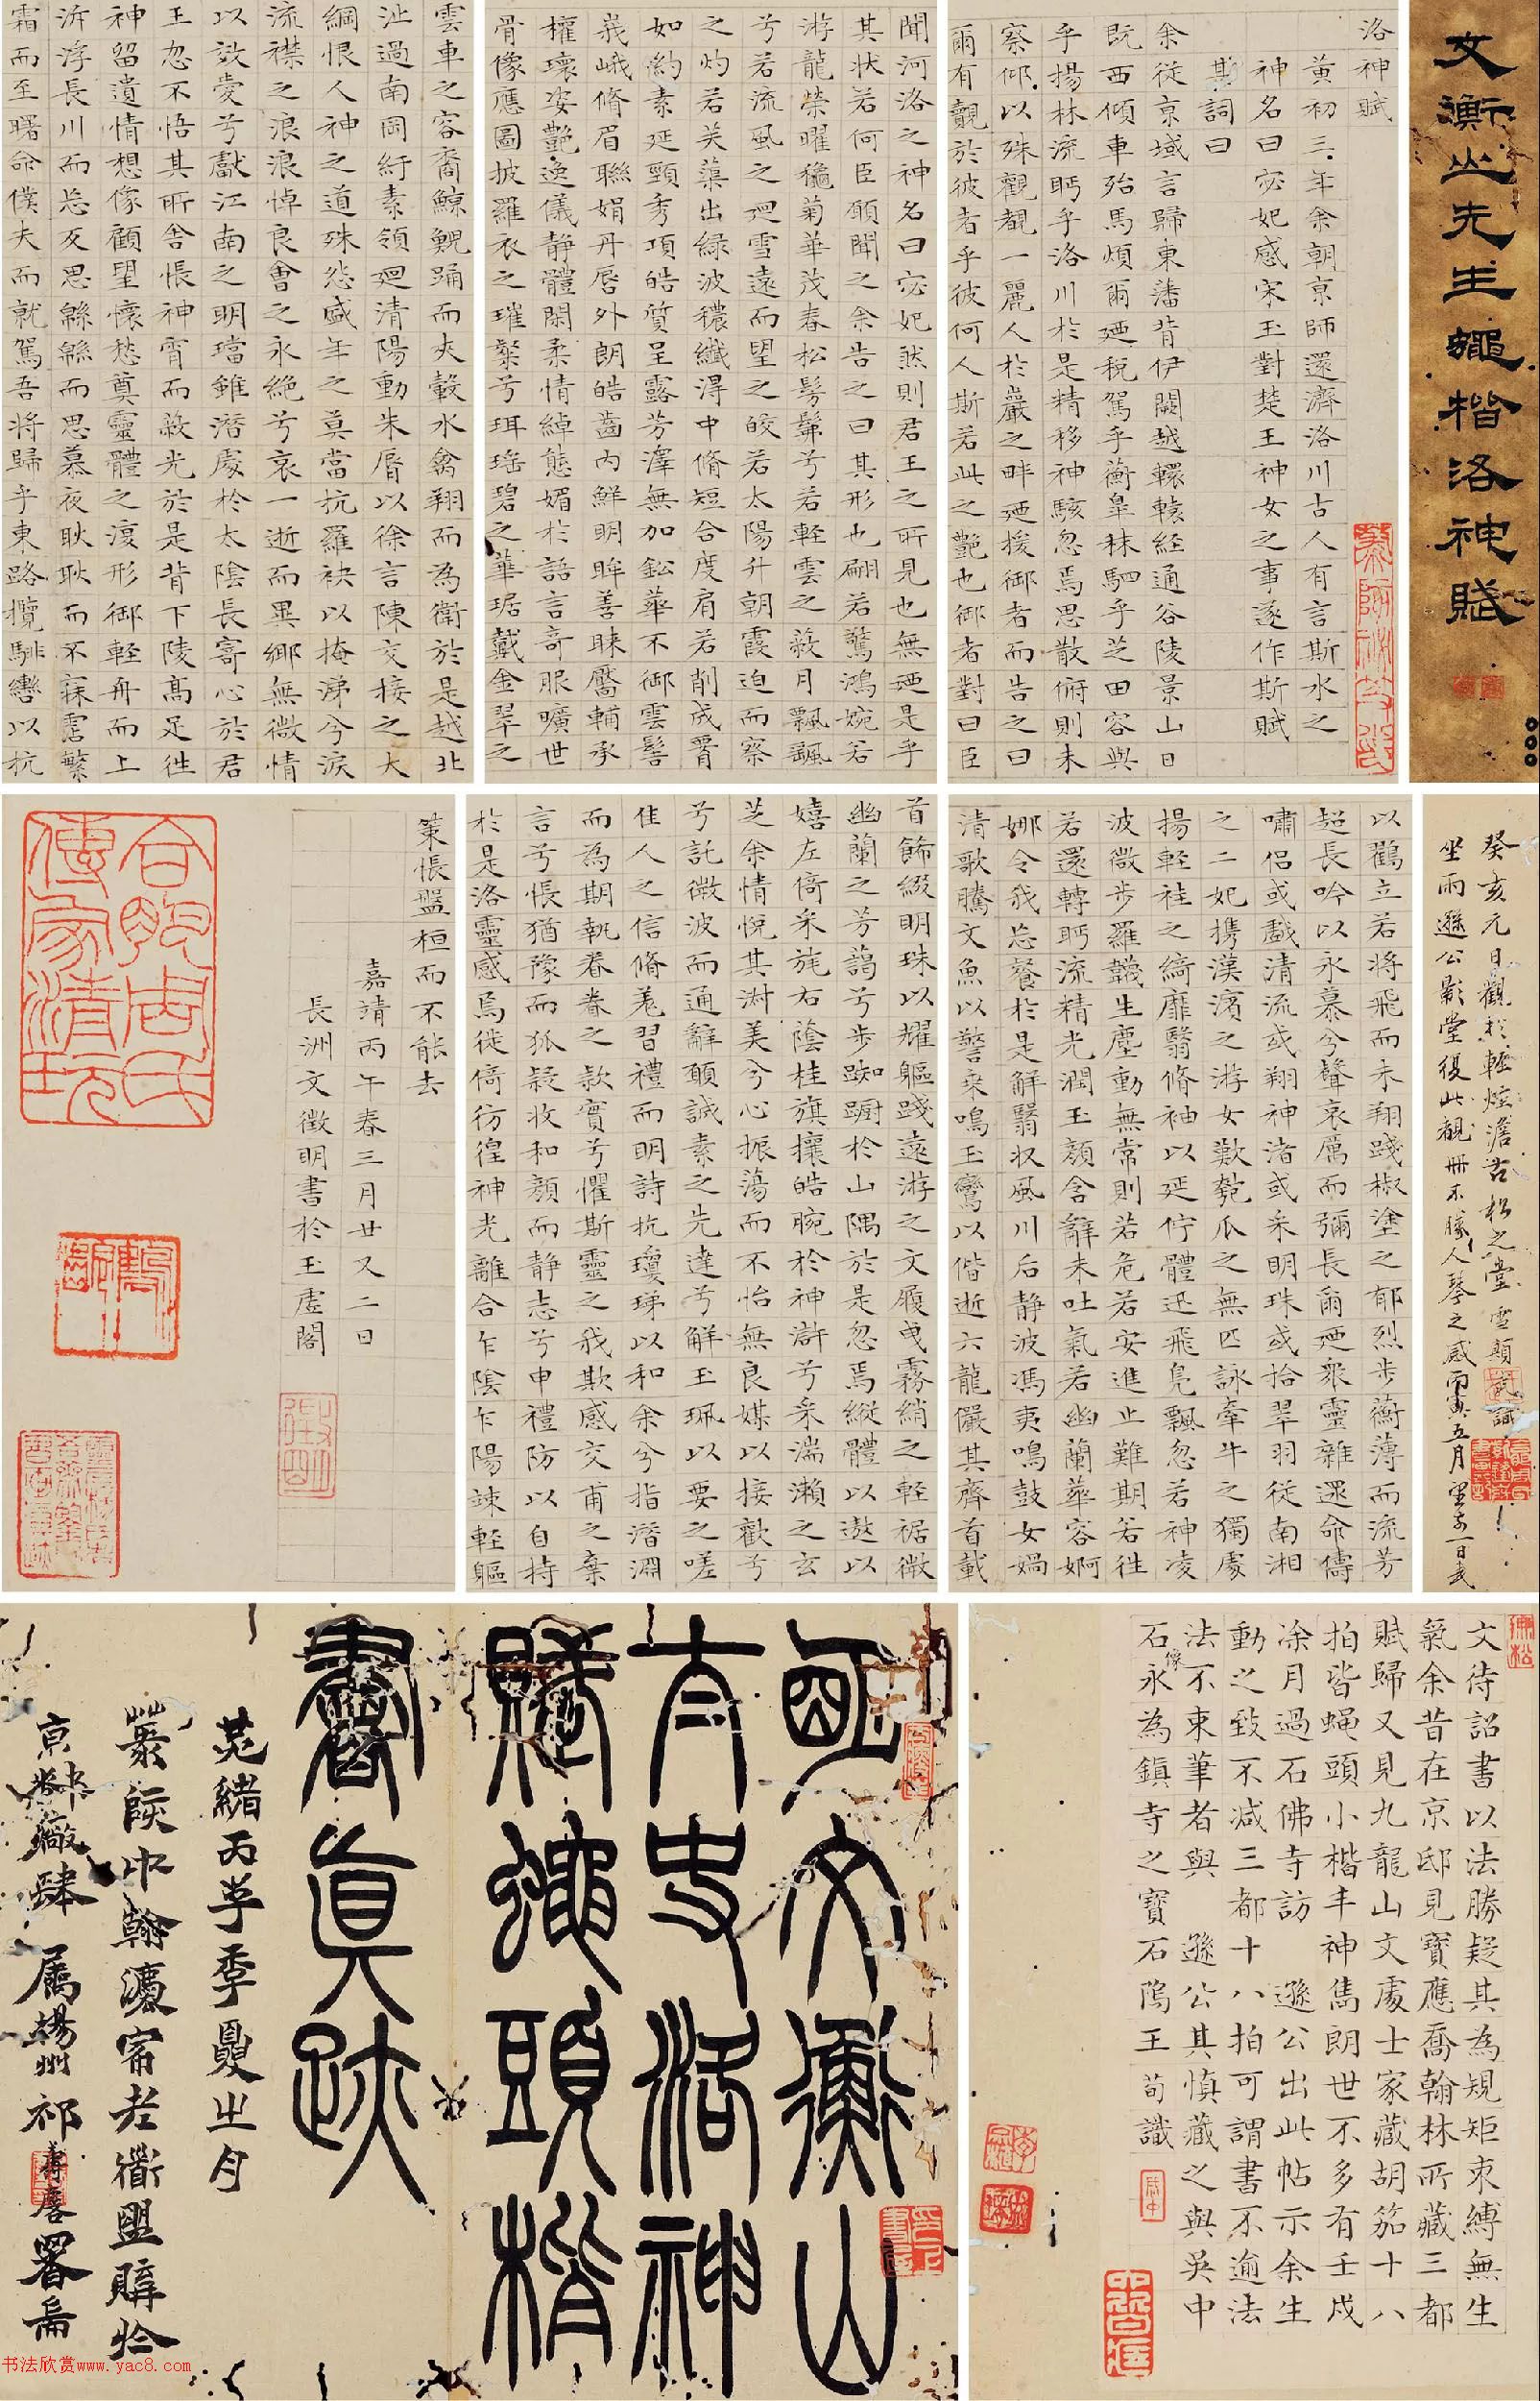 文衡山先生蠅楷洛神賦
洛神賦
黃初三年余朝京師還濟洛川古人有言斯水之
神名曰宓妃感宋玉對楚王神女之事遂作斯賦
其詞曰
余從京域言歸東藩背伊闕越轘轅経通谷陵景山日
既西傾車殆馬煩爾迺稅駕乎蘅皐秣駟乎芝田容與
乎揚林流眄乎洛川於是精移神駭忽焉思散俯則未
察仰以殊觀覩一麗人於巖之畔迺援御者而告之曰
爾有覿於彼者乎彼何人斯若此之艶也御者對曰臣
聞河洛之神名曰宓妃然則君王之所見也無迺是乎
其状若何臣願聞之余告之曰其形也翩若驚鴻婉若
游龍榮曜穐菊華茂春松髣髴兮若軽雲之蔽月飄飖
兮若流風之廻雪遠而望之皎若太陽升朝霞迫而察
之灼若芙蕖出綠波穠纖淂中脩短合度肩若削成署
如約素延頸秀項皓質呈露芳澤無加鈆華不御雲髻
峩峨脩眉聯娟丹唇外朗皓齒內鮮明眸善睞靨輔承
權瓌姿艶逸儀静體閑柔情綽態媚於語言奇服曠世
骨像應圖披羅衣之璀粲兮珥瑶碧之華琚戴金翠之
首飾綴明珠以耀軀踐遠游之文履曳霧綃之軽裾微
幽蘭之芳藹兮步踟蹰於山隅於是忽焉縱體以遨以
嬉左倚采旄右蔭桂旗攘皓腕於神滸兮采湍瀨之玄
芝余情悅其淑美兮心振蕩而不怡無良媒以接歡兮
兮託微波而通辭願誠素之先達兮解玉珮以要之嗟
佳人之信脩羌習禮而明詩抗瓊珶以和余兮指潛淵
而為期執眷眷之款實兮懼斯靈之我欺感交甫之棄
言兮悵猶豫而狐疑收和顏而静志兮申禮防以自持
於是洛靈感焉徙倚彷徨神光離合乍陰乍陽竦軽軀
以鶴立若将飛而未翔踐椒塗之郁烈步蘅薄而流芳
超長吟以永慕兮聲哀厲而彌長爾迺衆靈雜遝命儔
嘯侣或戲清流或翔神渚或采明珠或拾翠羽從南湘
之二妃携漢濱之游女歎匏瓜之無匹詠牽牛之獨處
揚軽袿之綺靡翳脩袖以延佇體迅飛鳬飄忽若神凌
波微步羅韈生塵動無常則若危若安進止難期若往
若還轉眄流精光潤玉顔含辭未吐氣若幽蘭華容婀
娜令我忘餐於是屏翳収風川后静波馮夷鳴鼓女媧
清歌騰文魚以警乗鳴玉鸞以偕逝六龍儼其齊首載
雲車之容裔鯨鯢踊而夾轂水禽翔而為衛於是越北
沚過南岡紆素領廻清陽動朱脣以徐言陳交接之大
綱恨人神之道殊怨盛年之莫當抗羅袂以掩涕兮淚
流襟之浪浪悼良會之永絶兮哀一逝而異鄉無微情
以效愛兮獻江南之明璫雖潜處於太陰長寄心於君
王忽不悟其所舍悵神宵而蔽光於是背下陵髙足往
神留遺情想像顧望懷愁奠靈體之復形御軽舟而上
泝浮長川而忘反思緜緜而思慕夜耿耿而不寐霑繁
霜而至曙命僕夫而就駕吾将歸乎東路攬騑轡以抗
策悵盤桓而不能去
嘉靖丙午春三月廿又二日
長洲文徵明書於玉虛閣
癸亥元日觀於軽煙澹古松之堂雪顛識
坐雨遜公影堂復此觀冊不勝人琴之感甯寅五月望前一日
文待詔書以法勝疑其為規矩束縛無生
氣余昔在京邸見寳應喬翰林所藏三都
賦歸又見九龍山文處士家藏胡笳十八
拍皆蝇頭小楷丰神雋朗世不多有壬戌
涂月過石佛寺訪遜公出此帖示余生
動之致不減三都十八拍可謂書不逾法
法不束筆者與遜公其慎藏之與吳中
石像永為鎮寺之寳石隝王荀識
明文衡山
太史洛神
賦蠅頭楷
書真跡
光緒丙午季夏之月
叢陝中翰濂甯老衜盟購於
京都廠肆屬揚州祁壽麐署耑
合肥周氏
傳家清玩
徵明
书法欣赏www.yac8.com